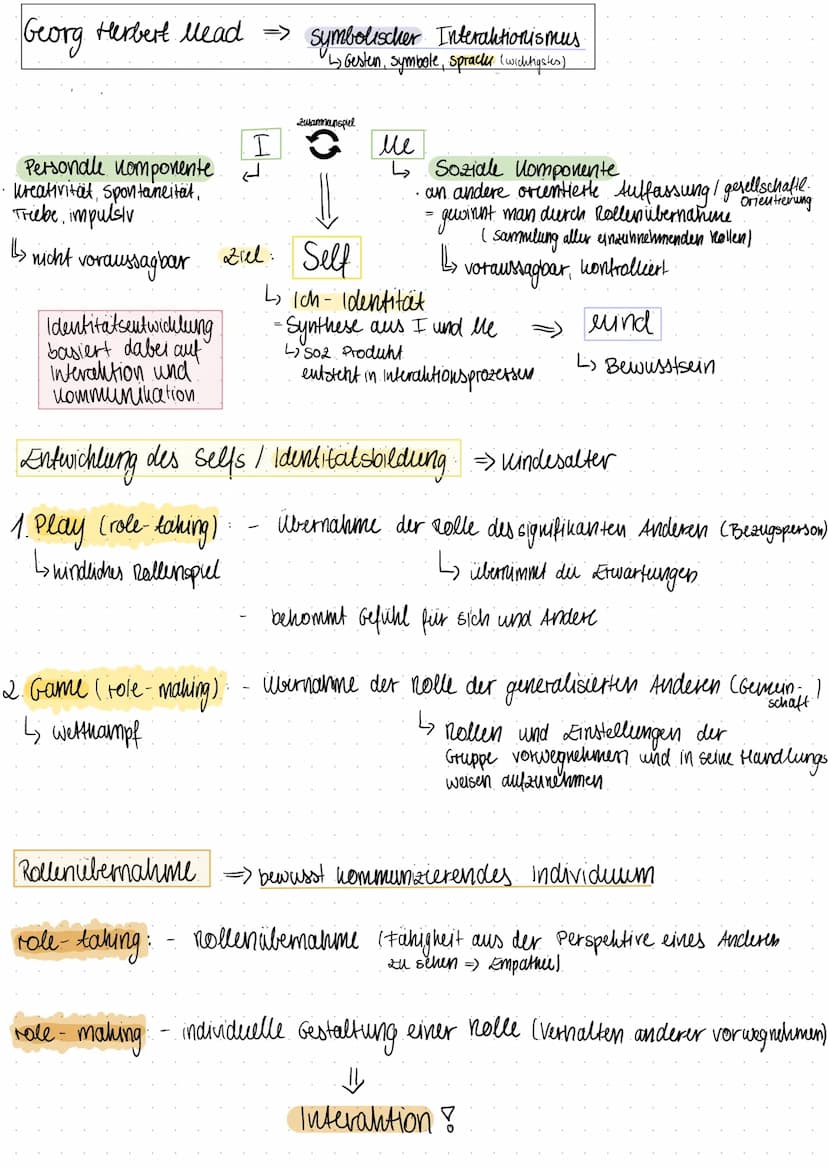 Georg Herbert Mead => symbolischer Interaktionismus
↳ Gesten, Symbole, Sprache (wichtigstes)
Zusammenspiel
I
Me
Personale Komponente
· Kreativität, Spontaneität,
Triebe, impulsiv
↳ nicht voraussagbar
Soziale Komponente
· an andere orientierte Auffassung / gesellschaftl. Orientierung
= gewinnt man durch Rollenübernahme
(Sammlung aller einzunehmenden Rollen)
↳ voraussagbar, kontrolliert
Ziel: Self
↳ Ich-Identität
= Synthese aus I und Me => Mind
↳ soz. Produkt
entsteht in Interaktionsprozessen
↳ Bewusstsein
Identitätsentwicklung
basiert dabei auf
Interaktion und
Kommunikation
Entwicklung des Selfs / Identitätsbildung => Kindesalter
1. Play (role-taking): - Übernahme der Rolle des signifikanten Anderen (Bezugsperson)
↳ kindliches Rollenspiel
↳ übernimmt die Erwartungen
- bekommt Gefühl für sich und Andere
2. Game (role-making): - Übernahme der Rolle der generalisierten Anderen (Gemeinschaft)
↳ Wettkampf
↳ Rollen und Einstellungen der
Gruppe vorwegnehmen und in seine Handlungs
weisen aufzunehmen
Rollenübernahme => bewusst kommunizierendes Individuum
role-taking: - Rollenübernahme (Fähigkeit aus der Perspektive eines Anderen
zu sehen => Empathie)
role-making - individuelle Gestaltung einer Rolle (Verhalten anderer vorwegnehmen)
⇓
Interaktion!